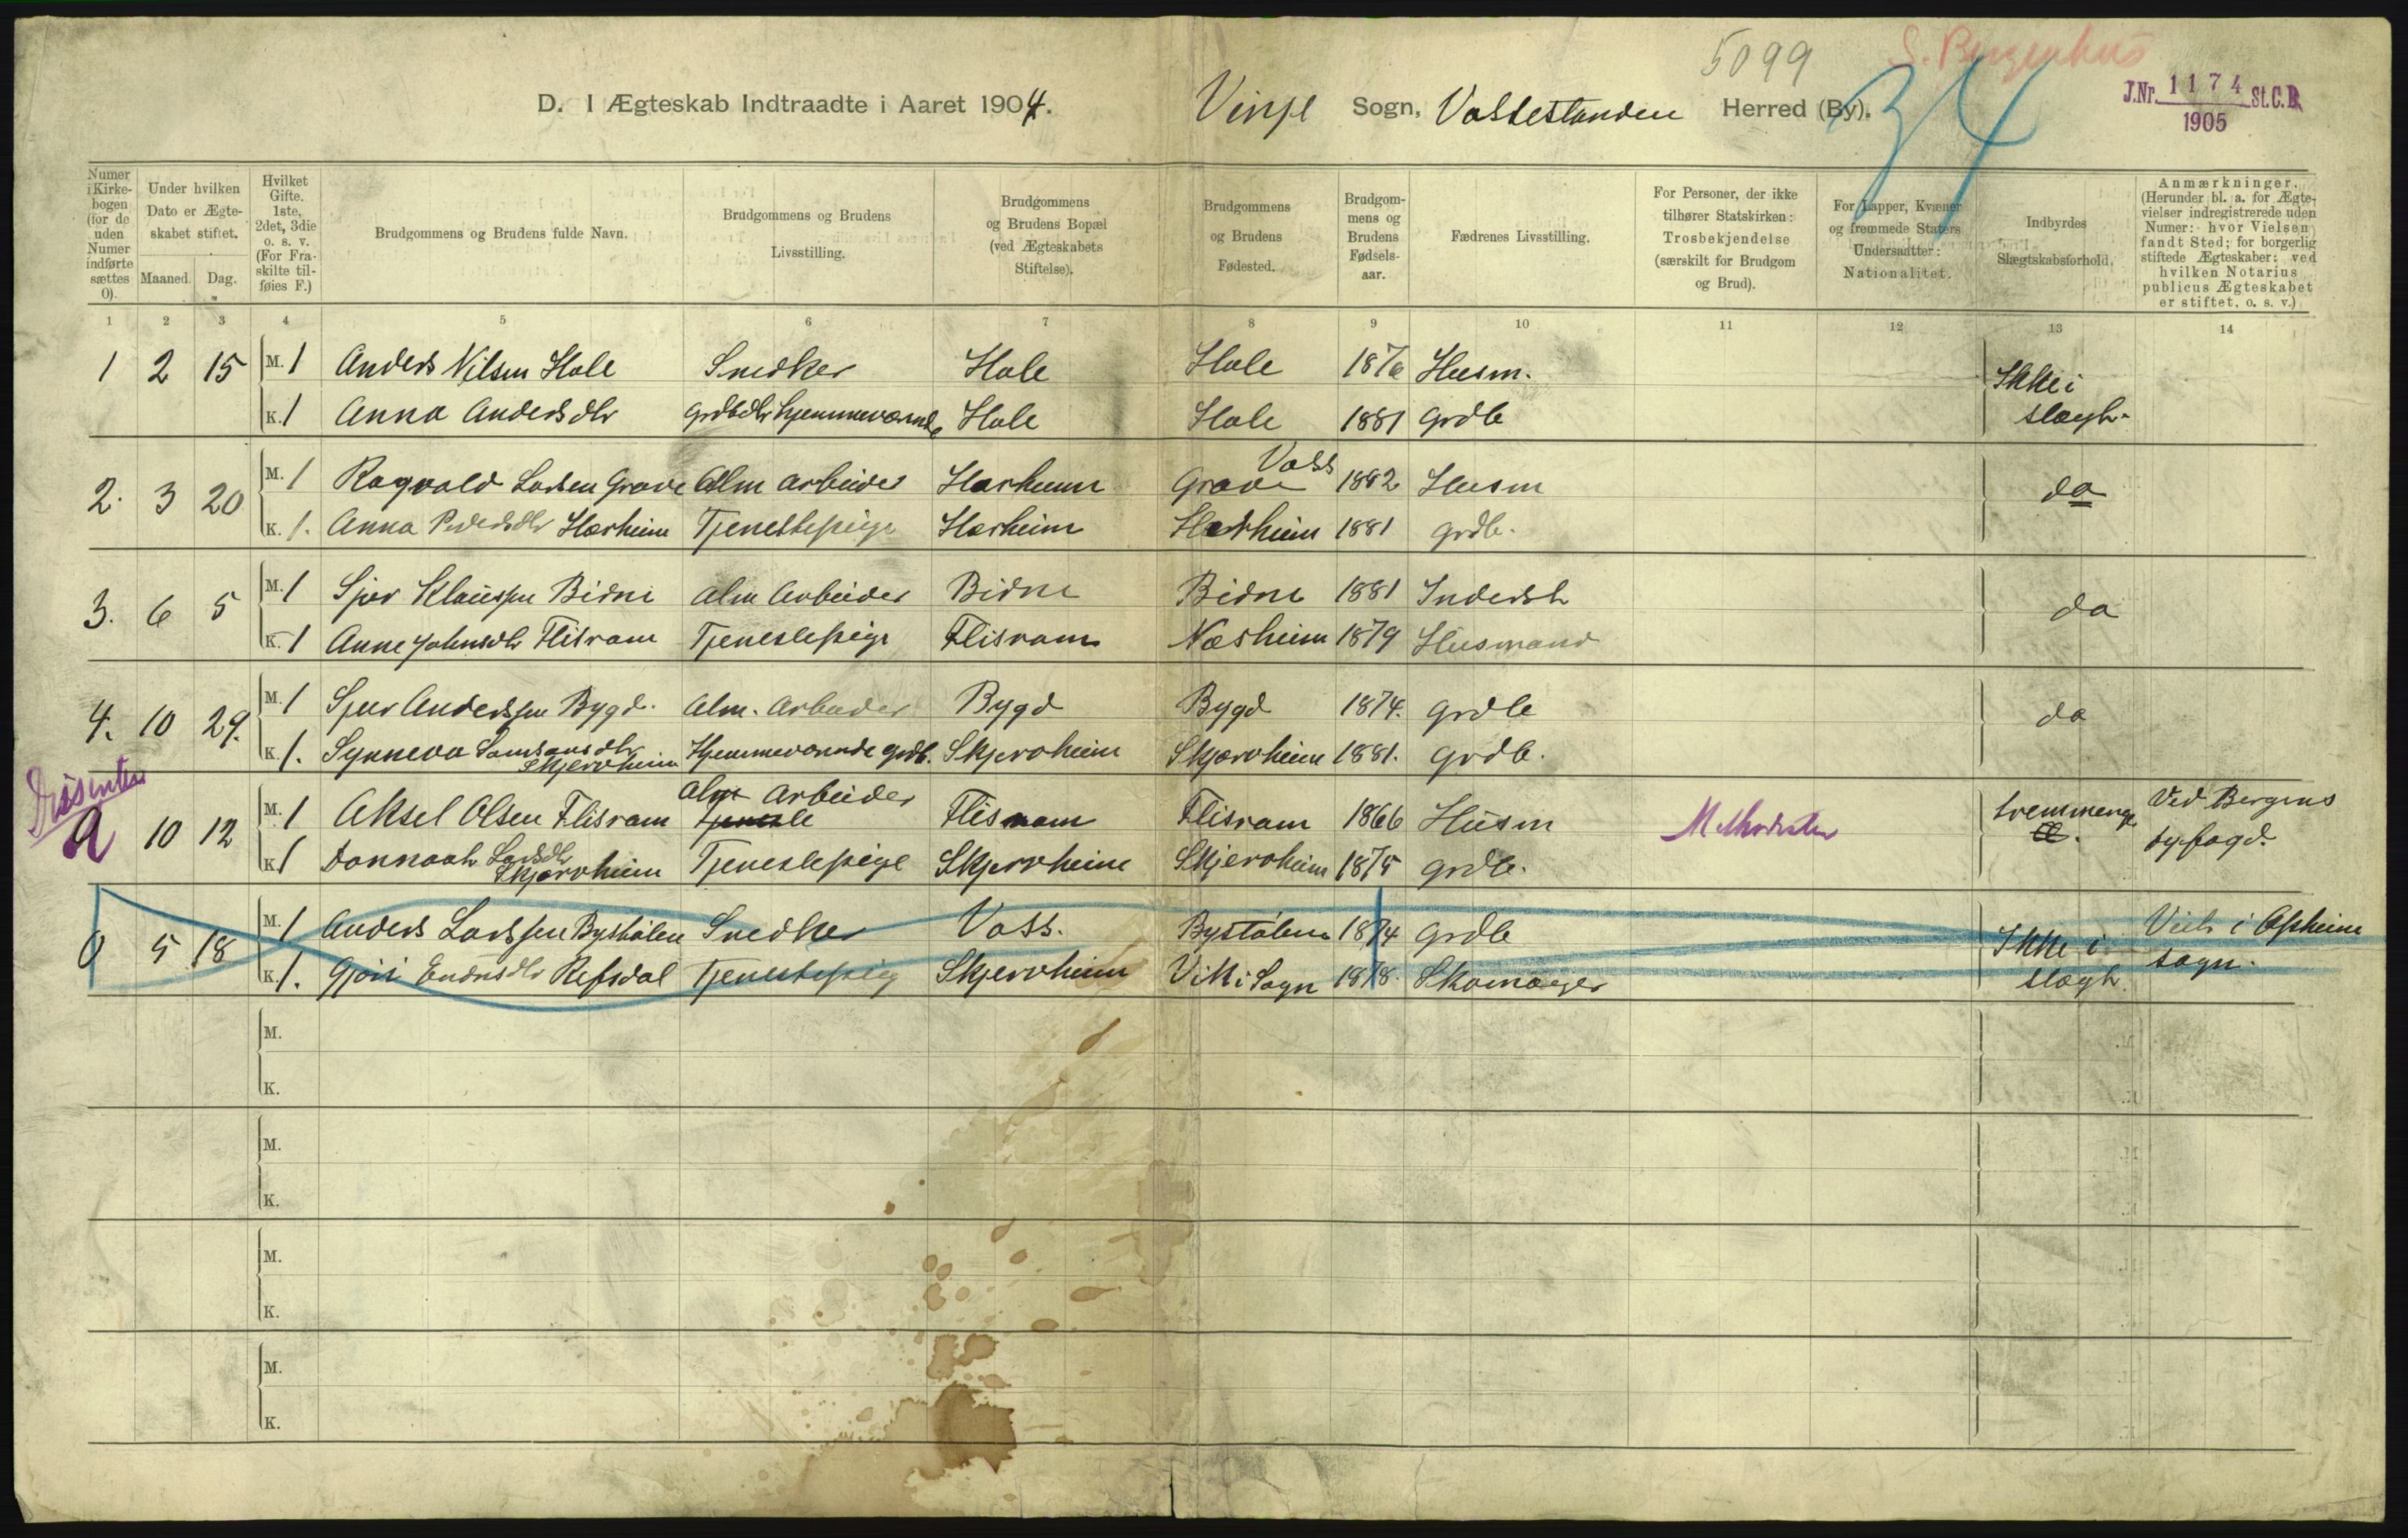 5099
S. Bergenhus
34
D. I Ægteskab Indtraadte i Aaret 1904.
Vinje Sogn, Vossestranden Herred (By).
J.Nr. 1174 St.C.B.
1905
Numer i Kirkebogen (for de uden Numer indførte sættes 0).
Under hvilken Dato er Ægteskabet stiftet.
Maaned. Dag.
Hvilket Gifte. 1ste, 2det, 3die o. s. v. (For Fraskilte tilføies F.)
Brudgommens og Brudens fulde Navn.
Brudgommens og Brudens Livsstilling.
Brudgommens og Brudens Bopæl (ved Ægteskabets Stiftelse).
Brudgommens og Brudens Fødested.
Brudgommens og Brudens Fødselsaar.
Fædrenes Livsstilling.
For Personer, der ikke tilhører Statskirken: Trosbekjendelse (særskilt for Brudgom og Brud).
For Lapper, Kvæner og fremmede Staters Undersaatter: Nationalitet.
Indbyrdes Slægtskabsforhold.
Anmærkninger. (Herunder bl. a. for Ægtevielser indregistrerede uden Numer: hvor Vielsen fandt Sted; for borgerlig stiftede Ægteskaber: ved hvilken Notarius publicus Ægteskabet er stiftet, o. s. v.)
1 2 3 4 5 6 7 8 9 10 11 12 13 14
1 2 15 M. 1 Anders Nilsen Hole Snedker Hole Hole 1876 Husm. Ikke i
K. 1 Anna Andersdtr Grdbdtr hjemmeværende Hole Hole 1881 Grdb slægt.
2. 3 20 M. 1 Ragvald Larsen Grove Alm arbeider Hærheim Grove Voss 1882 Husm do
K. 1. Anna Pedersdtr Hærheim Tjenestepige Hærheim Hærheim 1881 grdb.
3. 6 5 M. 1 Sjur Klaussen Bidne alm Arbeider Bidne Bidne 1881 Inderst do
K. 1 Anne Johnsdtr Flisram Tjenestepige Flisram Næsheim 1879 Husmand
4. 10 29. M. 1 Sjur Anderssen Bygd. alm. Arbeider Bygd Bygd 1874. grdb do
K. 1. Synneva Samsonsdtr Skjerveheim Hjemmeværende grdb. Skjervheim Skjervheim 1881. grdb.
Dissenter
a 10 12 M. 1 Aksel Olsen Flisram Alm Arbeider Flisram Flisram 1866 Husm Methodister tremenninge Ved Bergens
K. 1 Larsdtr Skjervheim Tjenestepige Skjervheim Skjervheim 1875 grdb. byfogd.
0 5 18 M. 1 Anders Larssen Bystølen Snedker Voss. Bystølen 1874 grdb Ikke i Viet i Opheim
K. 1. Endresdtr Refsdal Tjenestepig Skjervheim Vik i Sogn 1878. Skomager slægt. sogn.
M.
K.
M.
K.
M.
K.
M.
K.